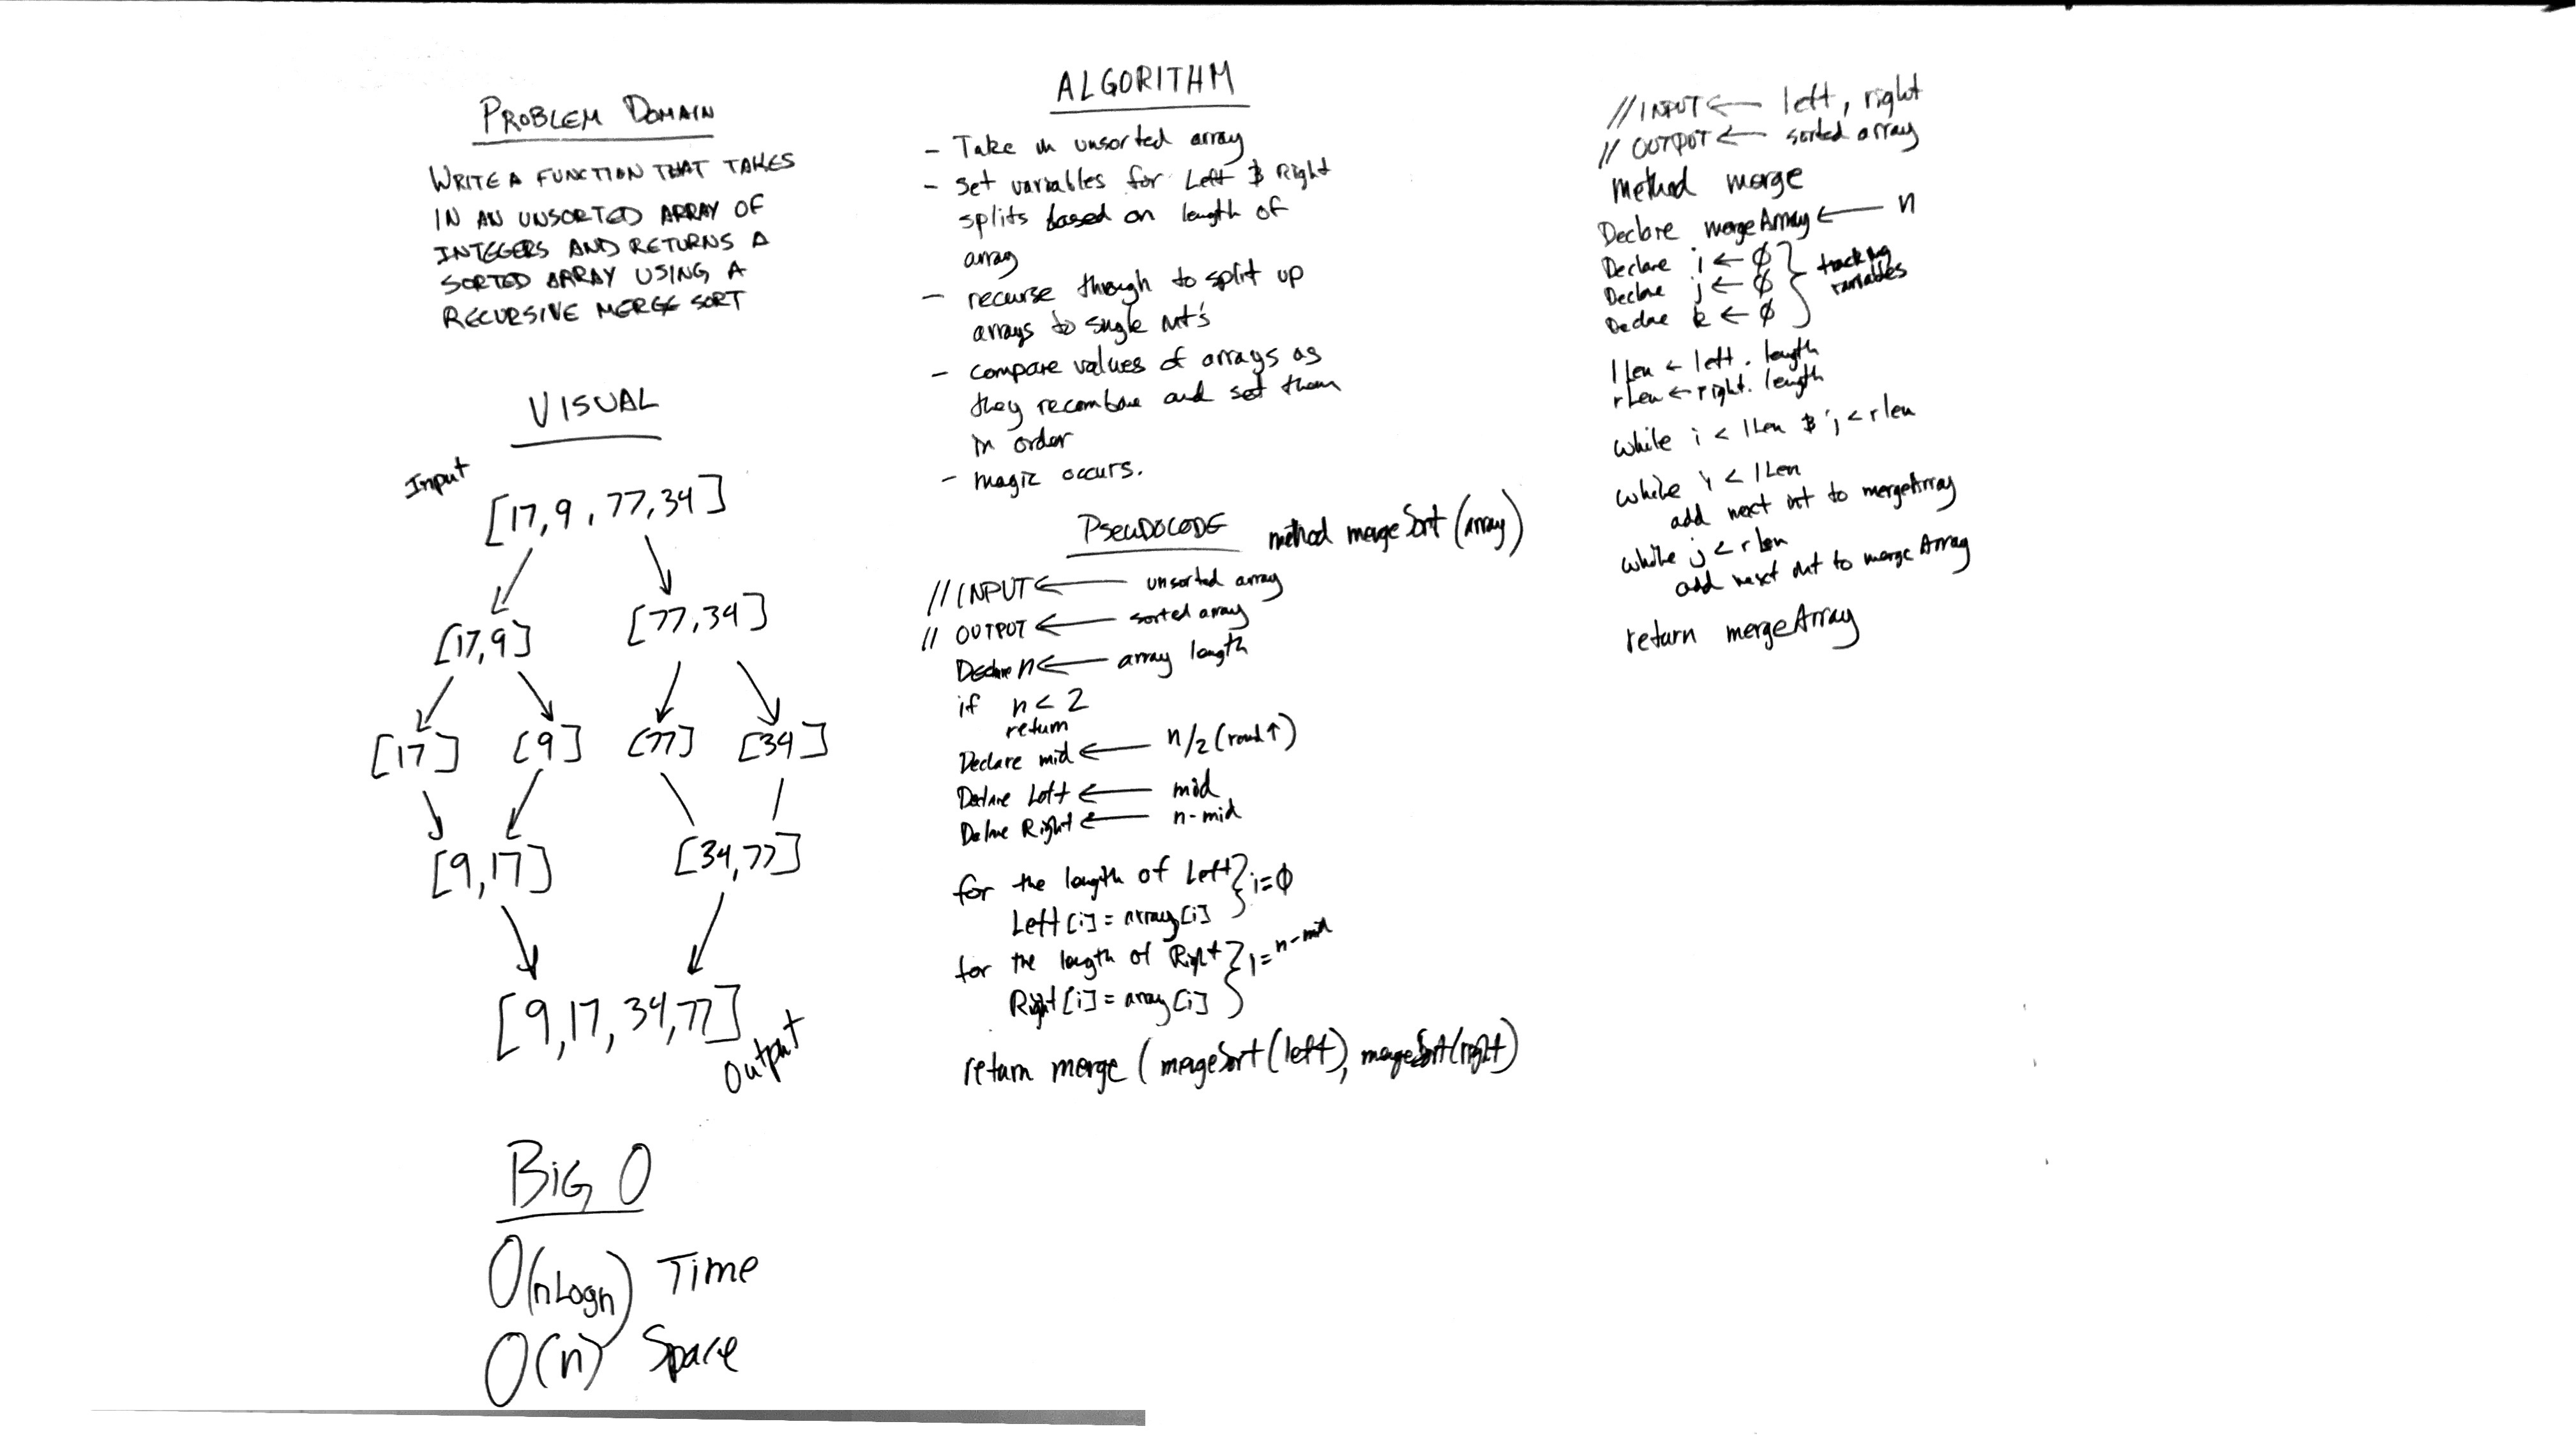 PROBLEM DOMAIN
WRITE A FUNCTION THAT TAKES
IN AN UNSORTED ARRAY OF
INTEGERS AND RETURNS A
SORTED ARRAY USING A
RECURSIVE MERGE SORT
VISUAL
Input
[17,9,77,34]
[17,9] [77,34]
[17] [9] [77] [34]
[9,17] [34,77]
[9,17,34,77]
Output
BIG O
O(nLogn) Time
O(n) Space
ALGORITHM
- Take in unsorted array
- set variables for Left & Right
splits based on length of
array
- recurse through to split up
arrays to single int's
- compare values of arrays as
they recombine and set them
in order
- magic occurs.
PSEUDOCODE method mergeSort(array)
// INPUT ← unsorted array
// OUTPUT ← sorted array
Declare n ← array length
if n < 2
return
Declare mid ← n/2 (round ↑)
Declare Left ← mid
Declare Right ← n-mid
for the length of Left } i=0
Left[i] = array[i]
for the length of Right } i=n-mid
Right[i] = array[i]
return merge (mergeSort(left), mergeSort(right)
// INPUT ← left, right
// OUTPUT ← sorted array
method merge
Declare mergeArray ← n
Declare i ← 0 } tracking
Declare j ← 0 variables
Declare k ← 0
lLen ← left.length
rLen ← right.length
while i < lLen & j < rlen
while i < lLen
add next int to mergeArray
while j < rlen
add next int to mergeArray
return mergeArray